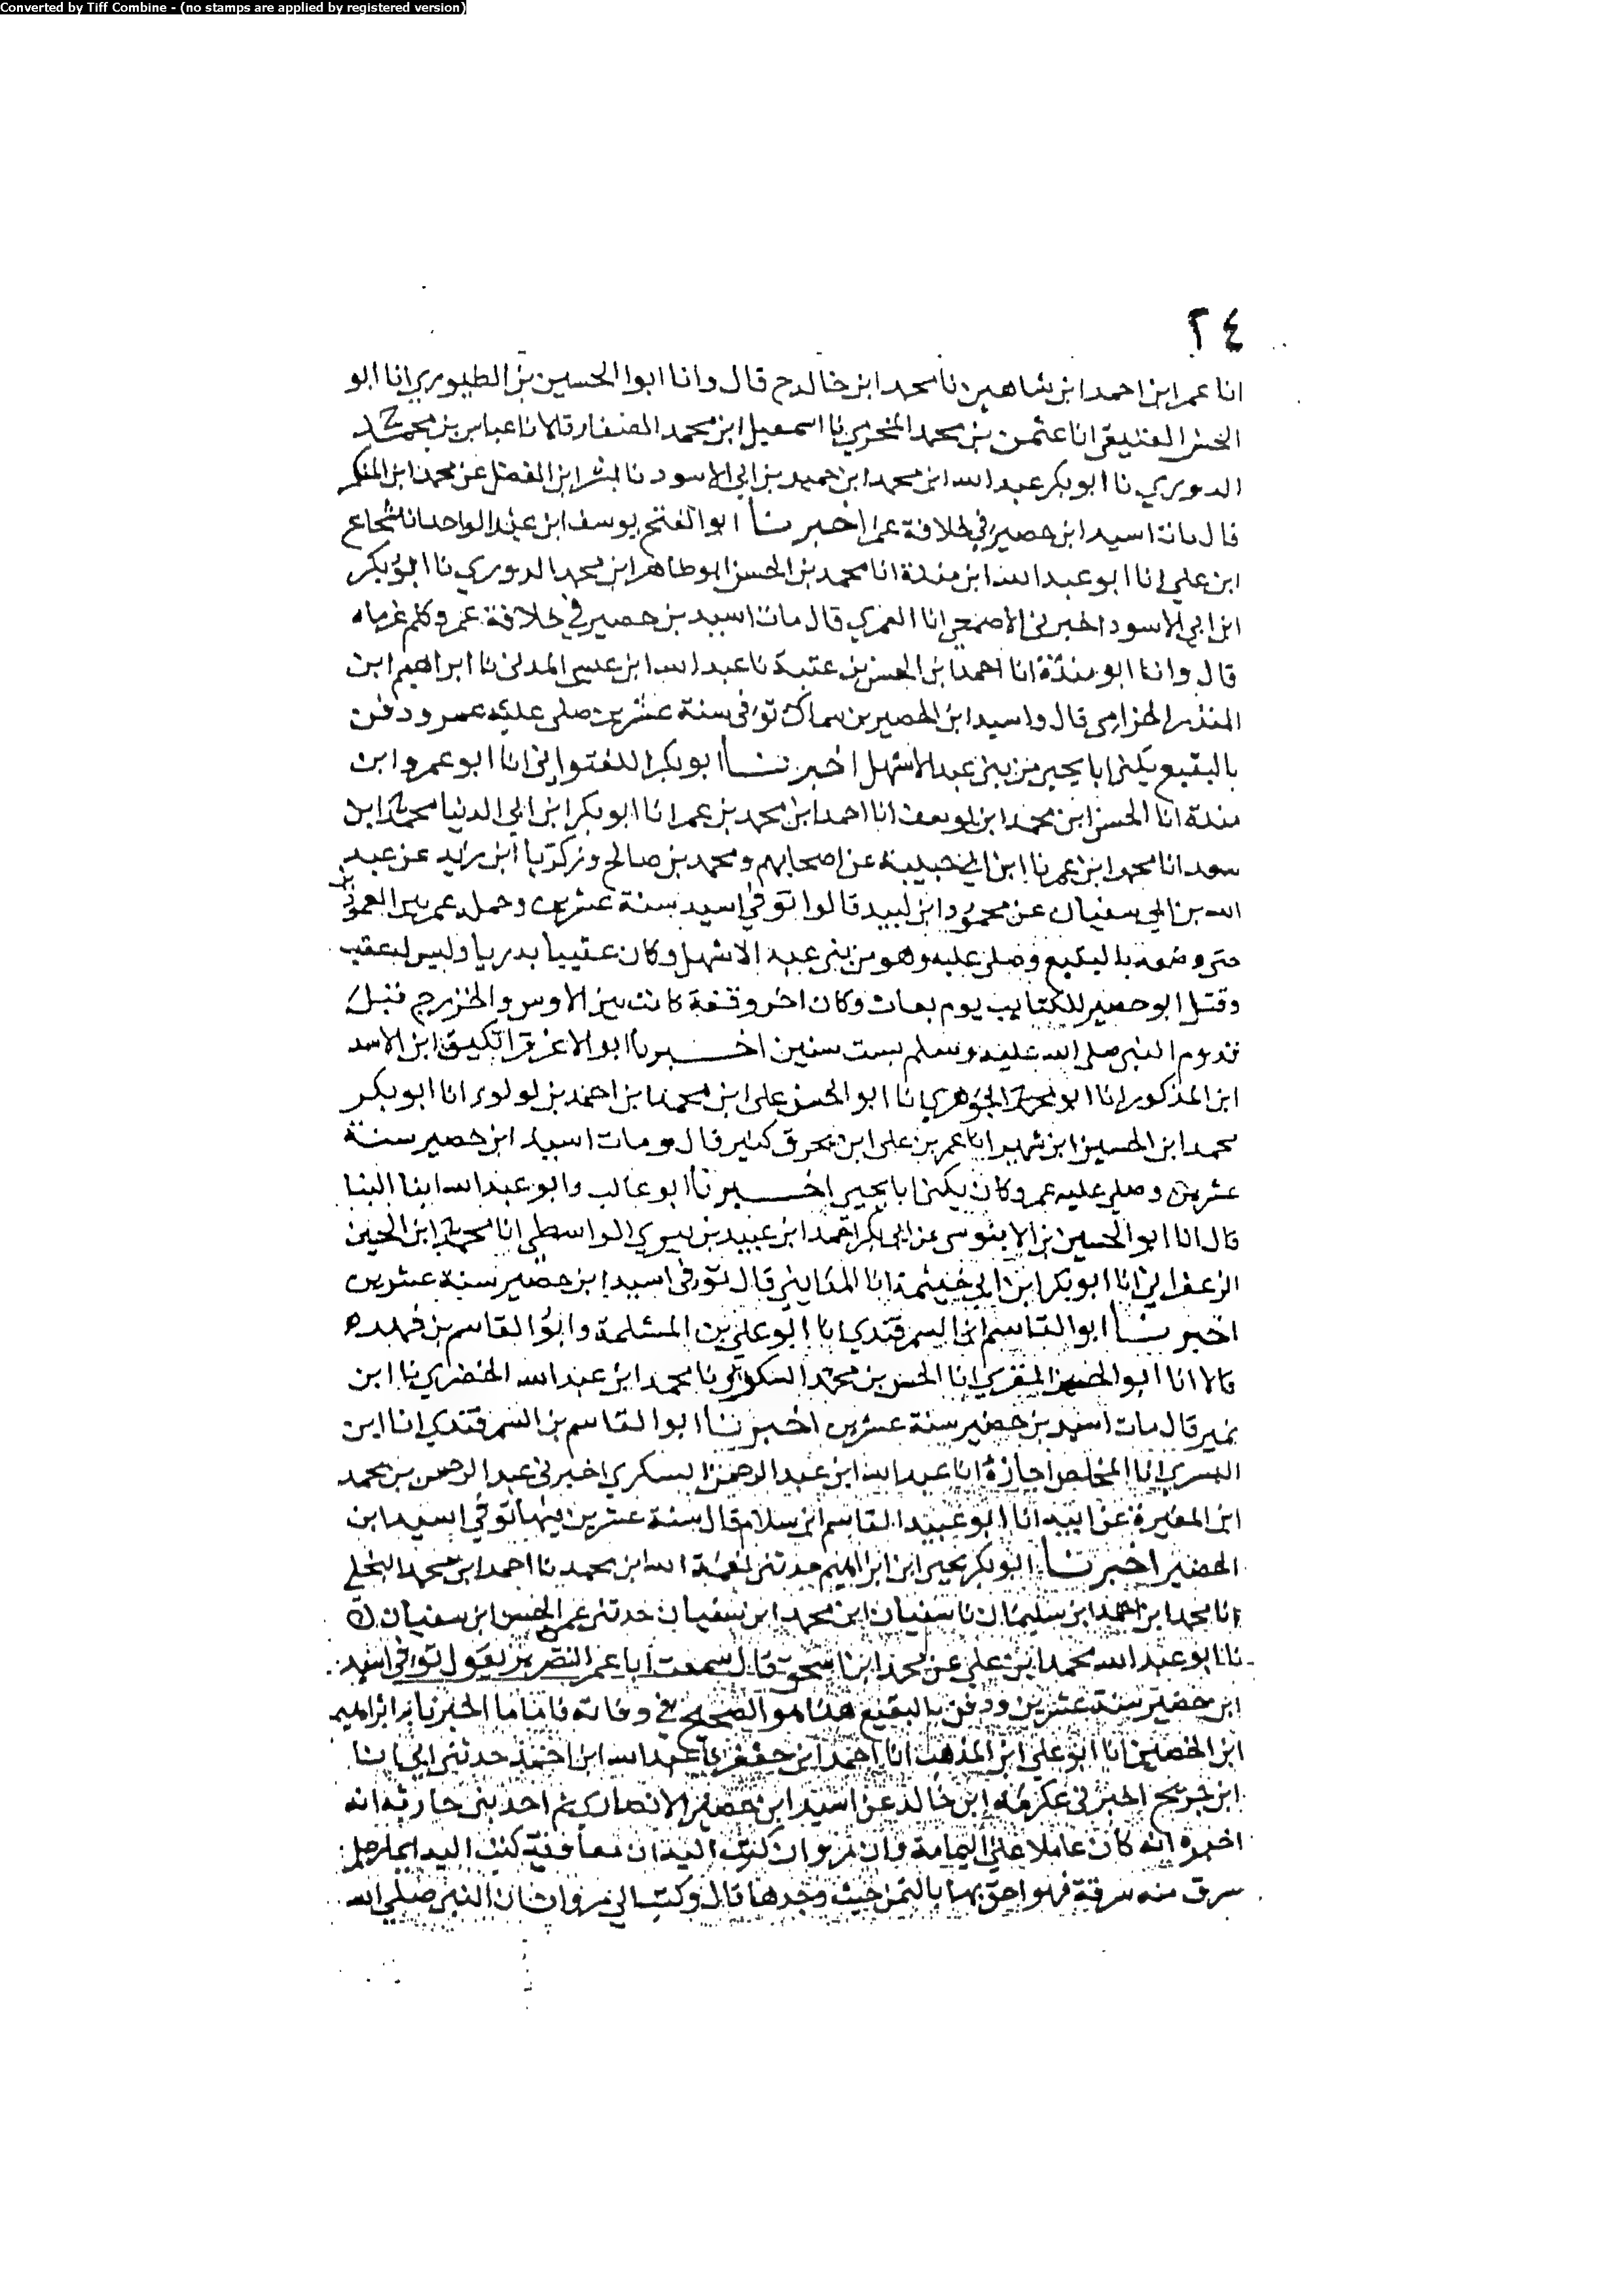 Converted by Tiff Combine - (no stamps are applied by registered version)
٢٤
انا عمر ابن احمد ابن شاهين نا محمد ابن خالد ح قال وانا ابوا الحسين بن الطيوري انا ابو
الحسن العتيقي انا عثمن بن محمد المخرمي نا اسمعيل ابن محمد الصفار قالا نا عباس بن محمد
الدوري نا ابو بكر عبد الله ابن محمد ابن حميد بن ابي الاسود نا بشر ابن الفضل عن محمد ابن المنكدر
قال مات اسيد ابن حضير في خلافة عمر اخبرنا ابوا الفتح يوسف ابن عبد الواحد انا شجاع
ابن علي انا ابو عبد الله ابن مندة انا محمد بن الحسن ابو طاهر ابن محمد الدوري نا ابو بكر
ابن ابي الاسود اخبرني الاصمعي انا العمري قال مات اسيد بن حضير في خلافة عمر وكلم غرماه
قال وانا ابو مندة انا احمد ابن الحسن بن عتبة نا عبد الله ابن عيسى المدني نا ابراهيم ابن
المنذر الحزامي قال واسيد ابن الحضير بن سماك توفى سنة عشرين صلى عليه عمر ودفن
بالبقيع يكنى ابا يحيى من بني عبد الاشهل اخبرنا ابو بكر اللفتواني انا ابو عمرو ابن
مندة انا الحسن ابن محمد ابن يوسف انا احمد ابن محمد بن عمر انا ابو بكر ابن ابي الدنيا محمد ابن
سعد انا محمد ابن عمر نا ابن ابي حبيبة عن اصحابهم ومحمد بن صالح وزكريا ابن زيد عن عبد
الله بن ابي سفيان عن محمود ابن لبيد قالوا توفي اسيد سنة عشرين وحمله عمر بين العمودين
حتى وضعه بالبقيع وصلى عليه وهو من بني عبد الاشهل وكان عقبيا بدريا وليس له عقب
وقتل ابو حضير الكتايب يوم بعاث وكان اخر وقعة كانت بين الاوس والخزرج قبل
قدوم النبي صلى الله عليه وسلم بست سنين اخبرنا ابو الاعز قراتكين ابن الاسد
ابن المذكور انا ابو محمد الجوهري نا ابو الحسن علي ابن محمد ابن احمد بن لولوء انا ابو بكر
محمد ابن الحسين ابن شهير انا عمر بن علي ابن بحر كنيز قال ومات اسيد ابن حضير سنة
عشرين وصلى عليه عمر وكان يكنى ابا يحيى اخبرنا ابو غالب وابو عبد الله ابنا البنا
قال انا ابو الحسين بن الابنوسي عن ابي بكر احمد ابن عبيد بن بيري الواسطي انا محمد ابن الحسين
الزعفراني انا ابو بكر ابن ابي خيثمة انا المدايني قال توفي اسيد ابن حضير سنة عشرين
اخبرنا ابوا القاسم ابن السمرقندي انا ابو علي بن المسلمة وابو القاسم بن فهده
قالا انا ابو الحسن المقري انا الحسن بن محمد السكوني نا محمد ابن عبد الله الحضرمي نا ابن
نمير قال مات اسيد بن حضير سنة عشرين اخبرنا ابوا القاسم بن السمرقندي انا ابن
البسري انا المخلص اجازة انا عبد الله ابن عبد الرحمن السكري اخبرني عبد الرحمن بن محمد
ابن المغيرة عن ابيه انا ابو عبيد القاسم ابن سلام قال سنة عشرين فيها توفي اسيد ابن
الحضير اخبرنا ابو بكر يحيى ابن ابراهيم حدثني نعمة الله ابن محمد نا احمد ابن محمد البجلي
انا محمد ابن احمد ابن سليمان نا سفيان ابن محمد ابن سفيان حدثني عمي الحسن ابن سفيان
نا ابو عبد الله محمد ابن علي عن محمد ابن اسحق قال سمعت ابا عمر الضرير يقول توفي اسيد
ابن حضير سنة عشرين ودفن بالبقيع هذا هو الصحيح في وفاته فاما ما اخبرنا
ابن الحصين انا ابو علي ابن المذهب انا احمد ابن جعفر نا عبد الله ابن احمد حدثني ابي
ابن جريج اخبرني عكرمة ابن خالد عن اسيد ابن حضير الانصاري ثم احد بني حارثة انه
اخبره انه كان عاملا على اليمامة وان مروان كتب اليه ان معاوية كتب اليه ايما رجل
سرق منه سرقة فهو احق بها بالثمن حيث وجدها قال وكتب الي مروان ان النبي صلى الله